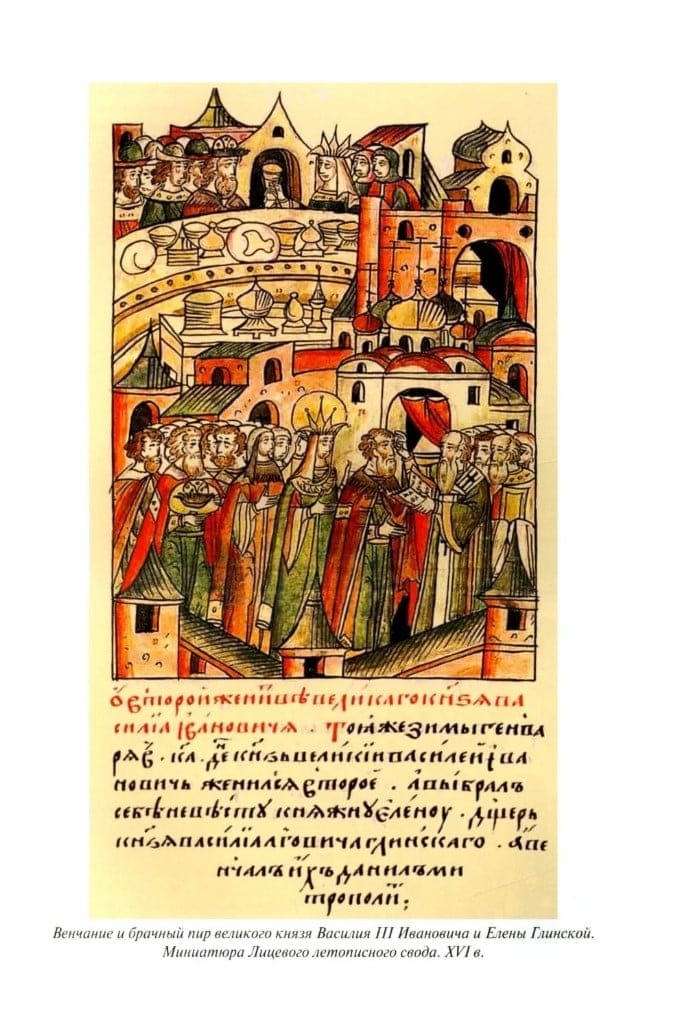 Ѡ второй женитвѣ великаго кн҃зѧ ва
силїа ивановича . Тоя же зимы генва
рѧ в . ка . дн҃ь кнѕь великїи василей ива
новичь женилсѧ второе . а выбралъ
себѣ невѣсту княжну еленоу . дщерь
кнѕѧ василїа лговича глинскаго . а ве
нчалъ ихъ данилъ ми
трополит;
Венчание и брачный пир великого князя Василия III Ивановича и Елены Глинской.
Миниатюра Лицевого летописного свода. XVI в.